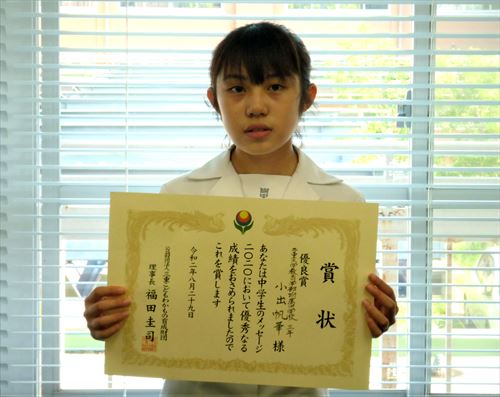 賞状
優良賞
三重大学教育学部附属中学校 三年
小出帆華 様
あなたは中学生のメッセージ
二〇二〇において優秀なる
成績をおさめられましたので
これを賞します
令和二年八月二十九日
公益財団法人三重こどもわかもの育成財団
理事長 福田圭司